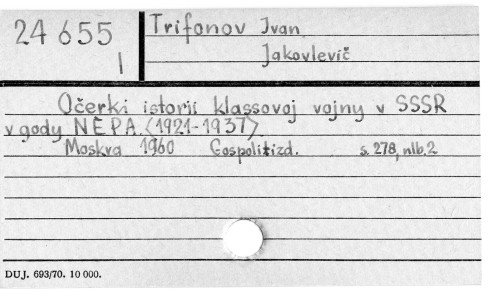 24 655
I
Trifonov Ivan
Jakovlevič
Očerki istorii klassovoj vojny v SSSR
v gody NĖPA. (1921-1937)
Moskva 1960 Gospolitizd. s. 278, nlb. 2
DUJ. 693/70. 10 000.